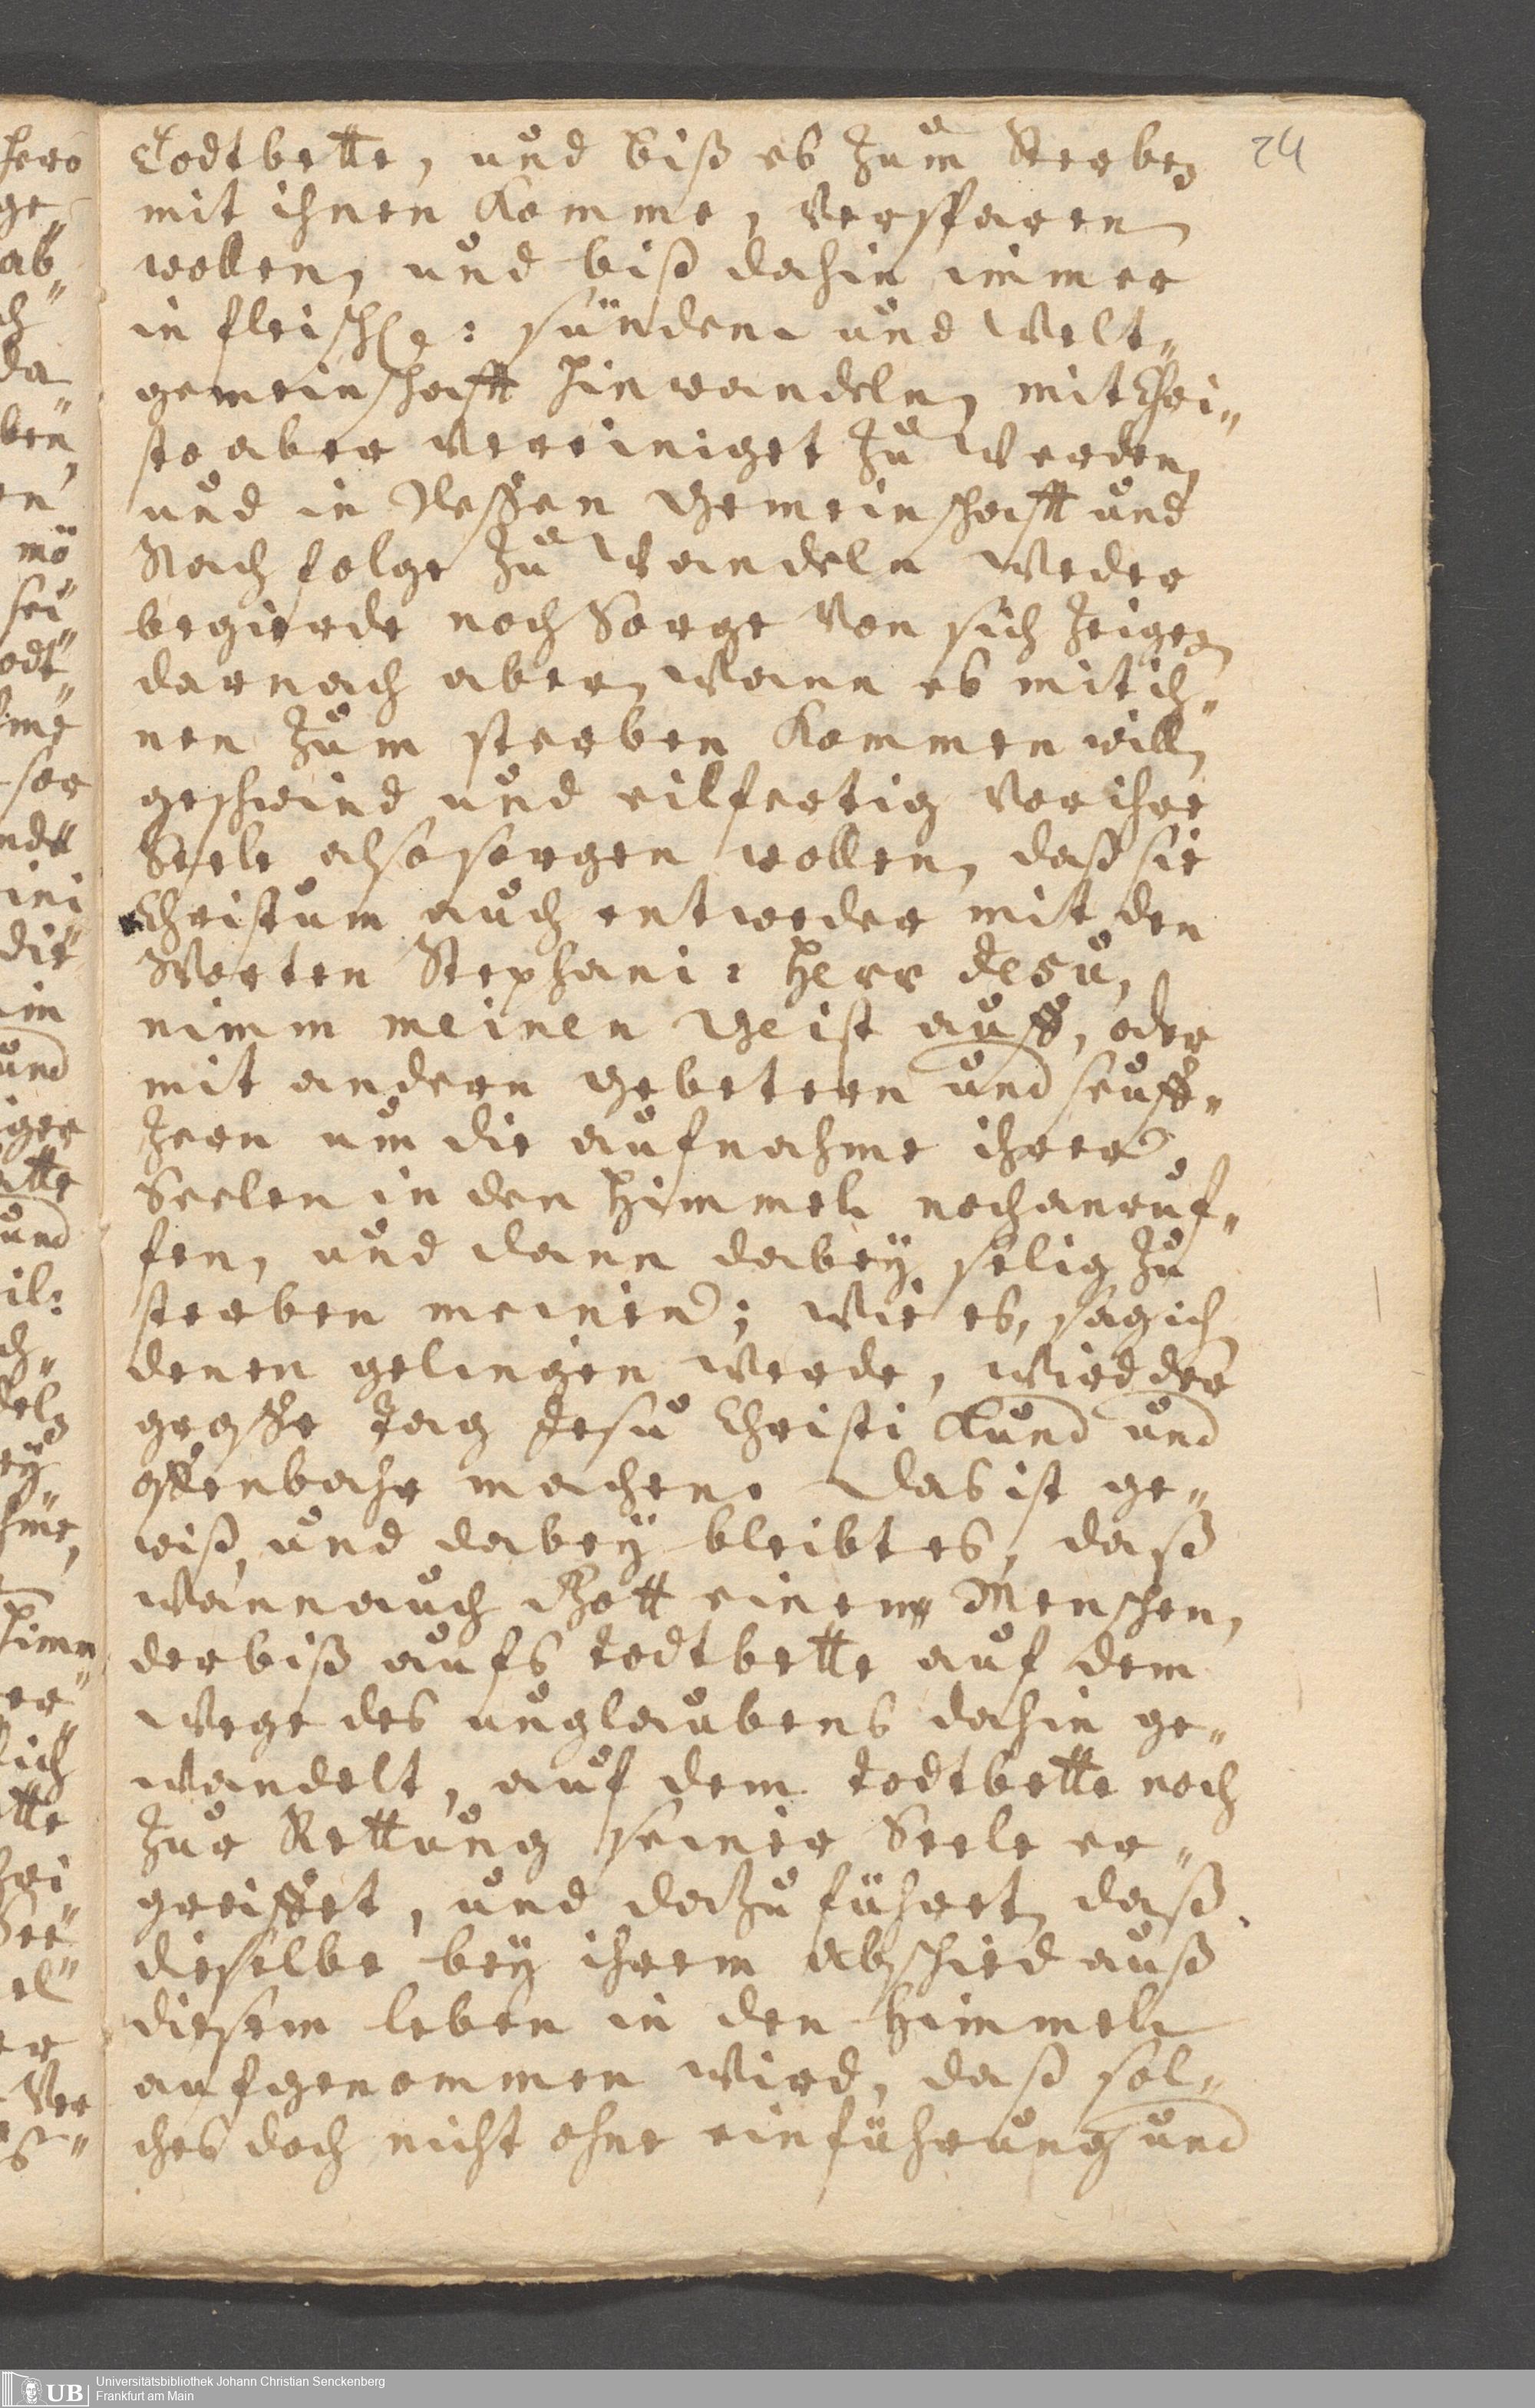 24
Todtbette, und biß es zum Sterben
mit ihnen komme, versparen
wollen, und biß dahin immer
in fleischl: sünden und Welt-
gemeinschafft hinwandeln, mit Chri-
sto aber Vereiniget zu Werden,
und in Dessen Gemeinschafft und
Nachfolge zu Wandeln Weder
begierde noch Sorge Von sich zeigen
darnach aber, Wann es mit ih-
nen zum sterben kommen will,
geschwind und eilfertig Vor ihre
Seele also sorgen wollen, daß sie
Christum auch entweder mit den
Worten Stephani: Herr Jesu,
nimm meinen Geist auff, oder
mit andern Gebetern und seuff-
zern um die aufnahme ihrer
Seelen in den Himmel noch anruf-
fen, und dann dabeÿ selig zu
sterben meinen; Wie es, sag ich
denen gelingen Werde, Wird der
grosse Tag Jesu Christi kund und
offenbahr machen. Das ist ge-
wiß, und dabeÿ bleibt es, daß
Wann auch Gott einem Menschen,
der biß aufs todtbette auf dem
Wege des unglaubens dahin ge-
wandelt, auf dem todtbette noch
zur Rettung seiner Seele er-
greiffet, und dazu führet, daß
dieselbe beÿ ihrem abschied auß
diesem leben in den Himmel
aufgenommen Wird, daß sol-
ches doch nicht ohne einführung und
UB
Universitätsbibliothek Johann Christian Senckenberg
Frankfurt am Main